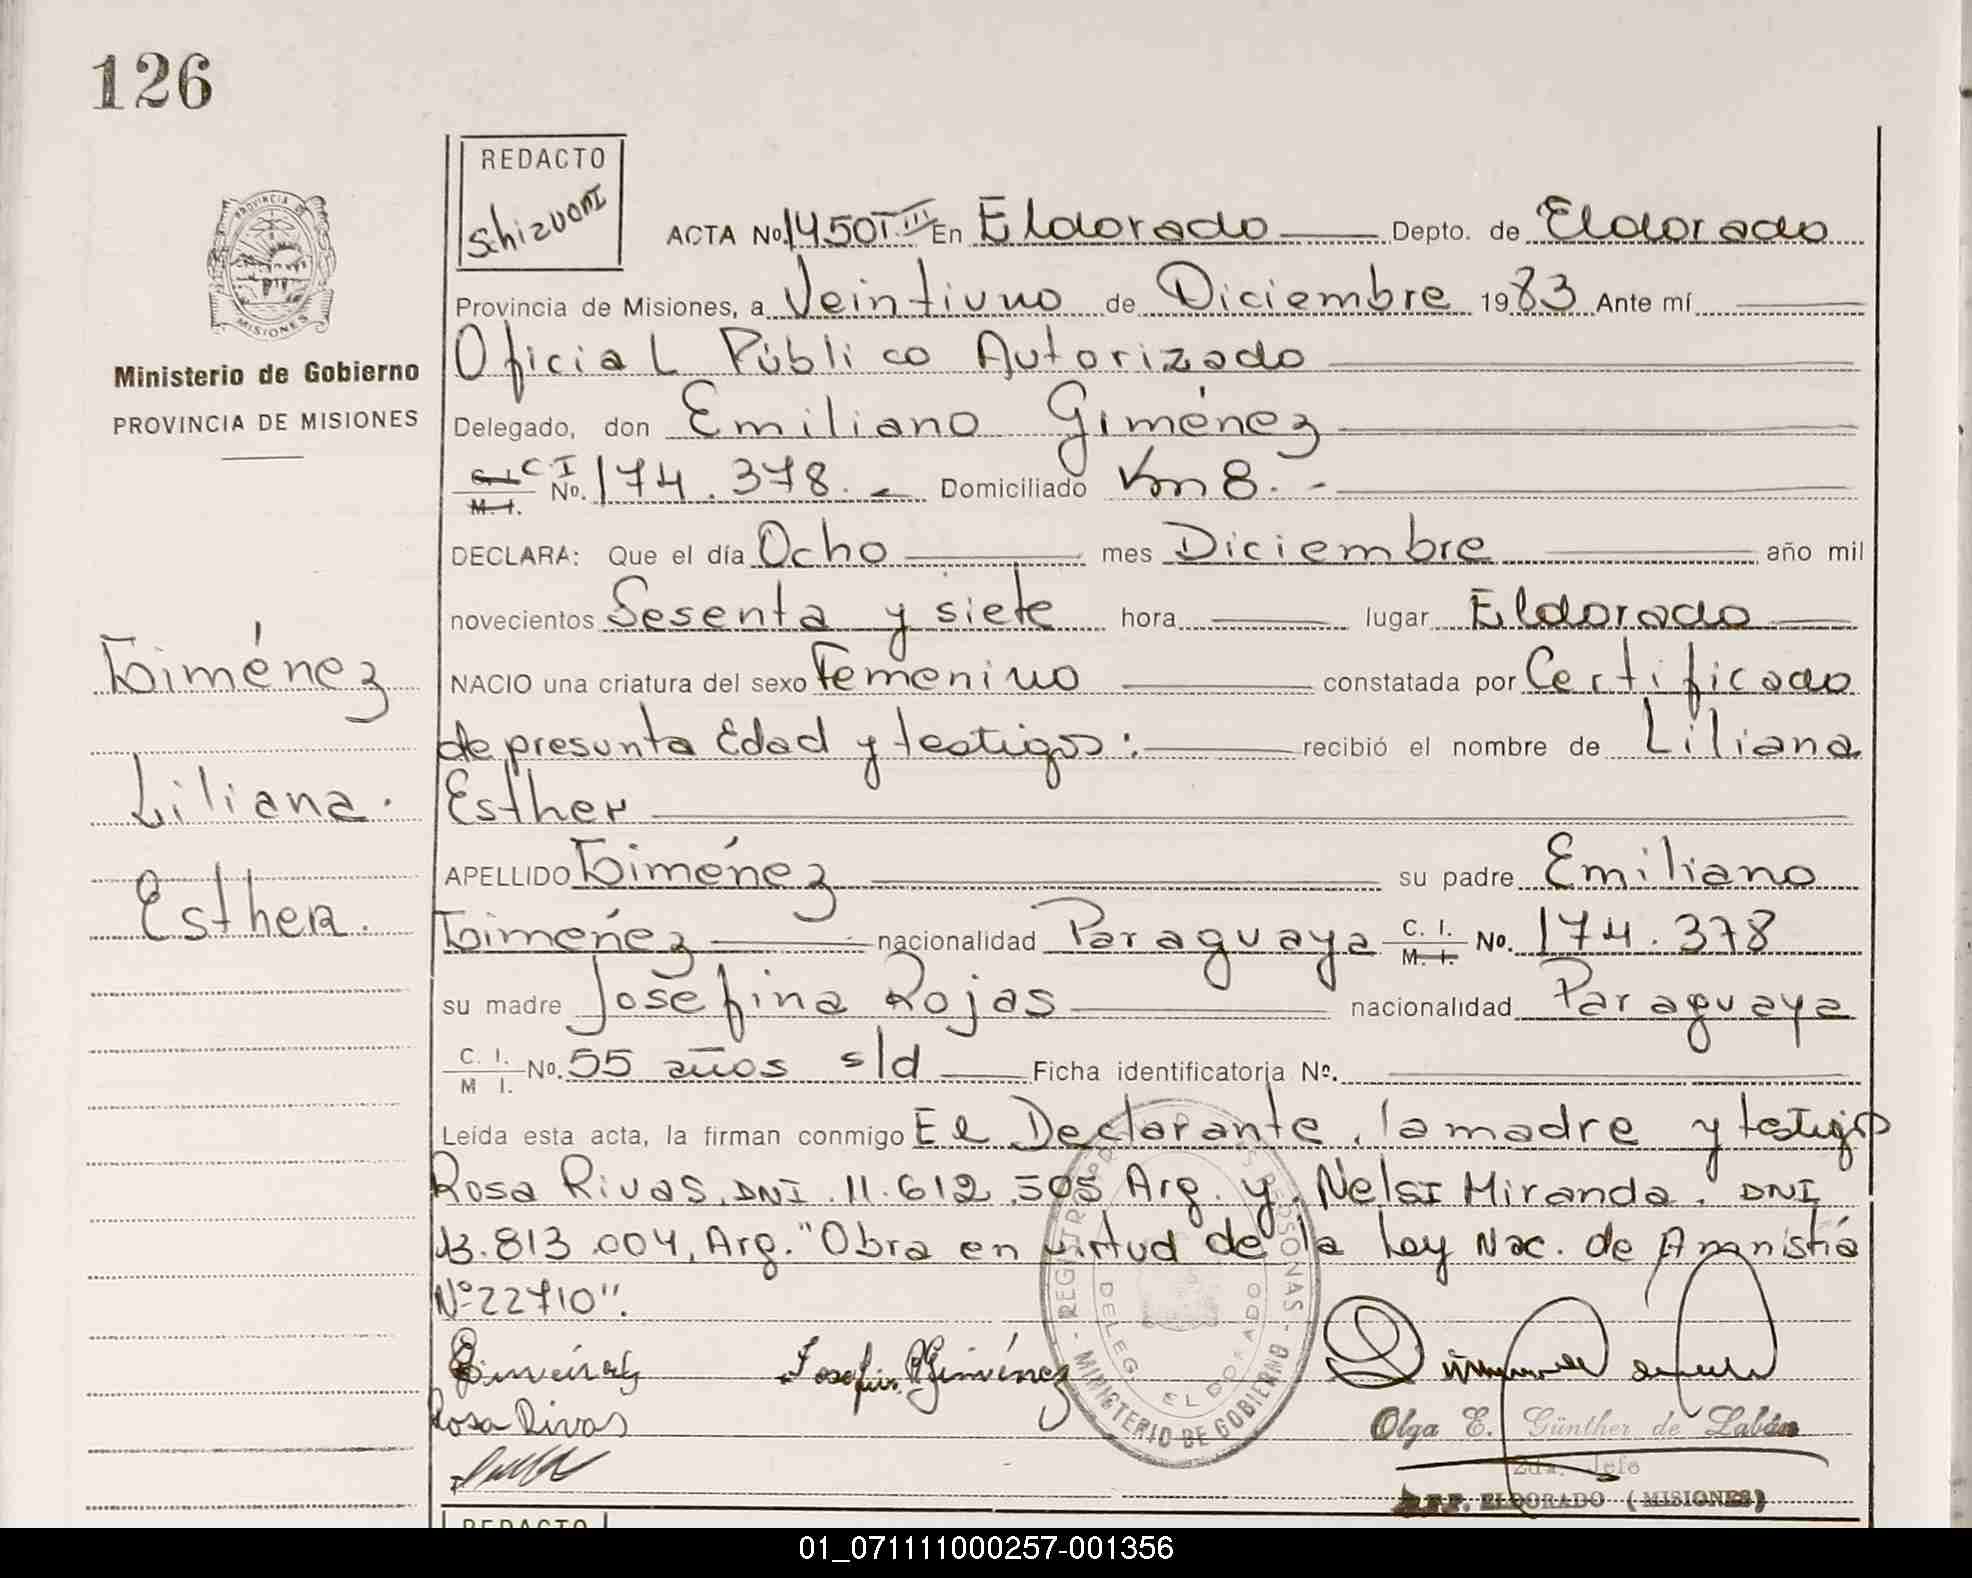 126
REDACTO
Schizuoni
ACTA No. 1450 T. III En Eldorado Depto. de Eldorado
Provincia de Misiones, a Veintiuno de Diciembre 1983 Ante mí
Oficial Público Autorizado
PROVINCIA DE MISIONES
Ministerio de Gobierno
PROVINCIA DE MISIONES
Delegado, don Emiliano Giménez
C I M. I. No. 174.378.- Domiciliado Km 8.-
DECLARA: Que el día Ocho mes Diciembre año mil
novecientos Sesenta y siete hora lugar Eldorado
NACIO una criatura del sexo Femenino constatada por Certificado
de presunta Edad y testigos: recibió el nombre de Liliana
Esther
Giménez
Liliana.
Esther.
APELLIDO Giménez su padre Emiliano
Giménez nacionalidad Paraguaya C. I. M. I. No. 174.378
su madre Josefina Rojas nacionalidad Paraguaya
C. I. M I. No. 55 años s/d Ficha identificatoria No.
Leída esta acta, la firman conmigo El Declarante, la madre y testigos
Rosa Rivas, DNI. 11.612.505 Arg. y, Nelsi Miranda. DNI
13.813.004, Arg. "Obra en virtud de la Ley Nac. de Amnistía
Nº 22710".
Giménez Josefina R Giménez
Rosa Rivas
REGISTRO PERSONAS - MINISTERIO DE GOBIERNO -
DELEG. ELDORADO
Olga E. Günther de Labán
2da. Jefe
ELDORADO (MISIONES)
REDACTO
01_071111000257-001356